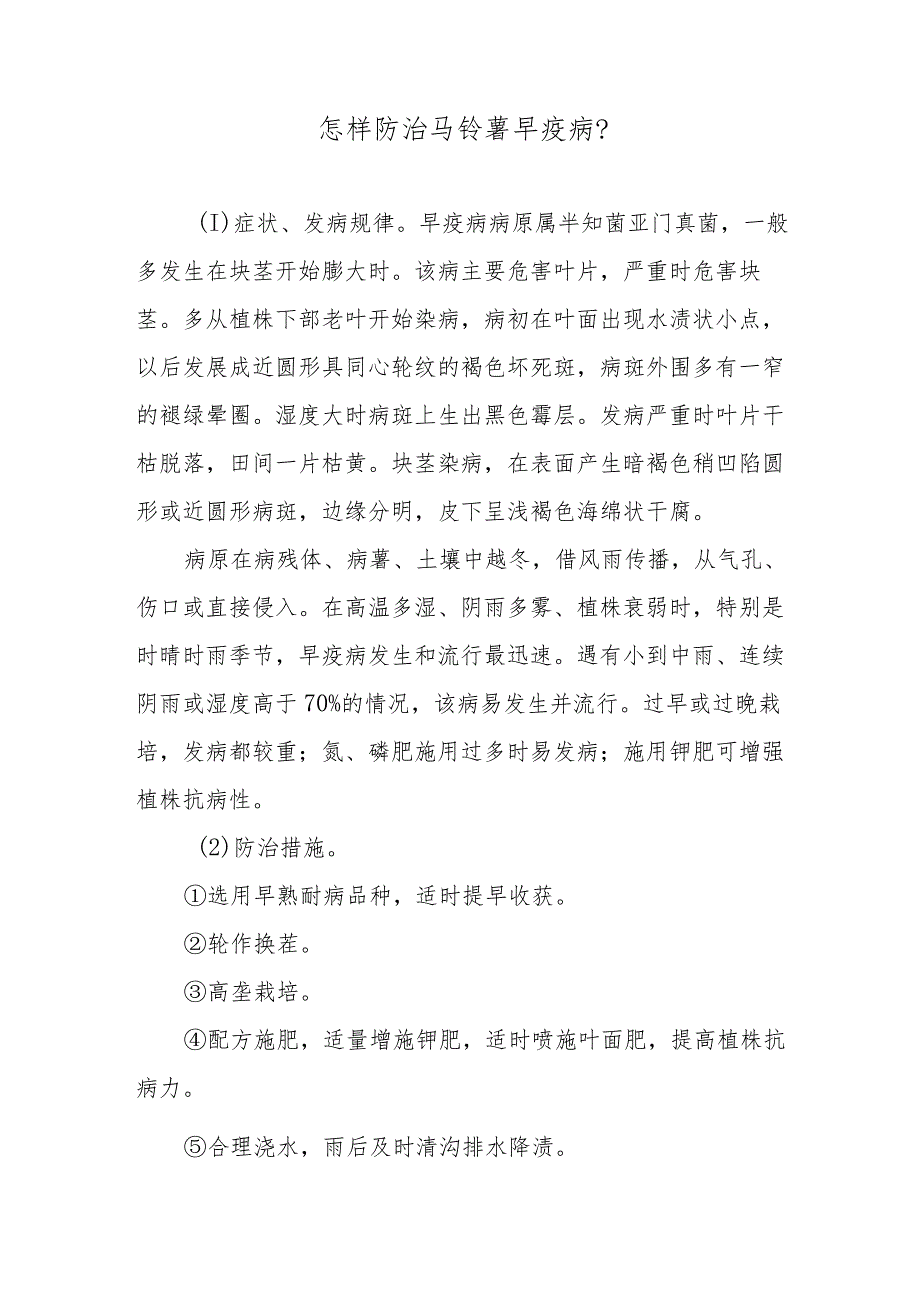 怎样防治马铃薯早疫病?
(I)症状、发病规律。早疫病病原属半知菌亚门真菌，一般
多发生在块茎开始膨大时。该病主要危害叶片，严重时危害块
茎。多从植株下部老叶开始染病，病初在叶面出现水渍状小点，
以后发展成近圆形具同心轮纹的褐色坏死斑，病斑外围多有一窄
的褪绿晕圈。湿度大时病斑上生出黑色霉层。发病严重时叶片干
枯脱落，田间一片枯黄。块茎染病，在表面产生暗褐色稍凹陷圆
形或近圆形病斑，边缘分明，皮下呈浅褐色海绵状干腐。
病原在病残体、病薯、土壤中越冬，借风雨传播，从气孔、
伤口或直接侵入。在高温多湿、阴雨多雾、植株衰弱时，特别是
时晴时雨季节，早疫病发生和流行最迅速。遇有小到中雨、连续
阴雨或湿度高于70%的情况，该病易发生并流行。过早或过晚栽
培，发病都较重；氮、磷肥施用过多时易发病；施用钾肥可增强
植株抗病性。
(2)防治措施。
①选用早熟耐病品种，适时提早收获。
②轮作换茬。
③高垄栽培。
④配方施肥，适量增施钾肥，适时喷施叶面肥，提高植株抗
病力。
⑤合理浇水，雨后及时清沟排水降渍。